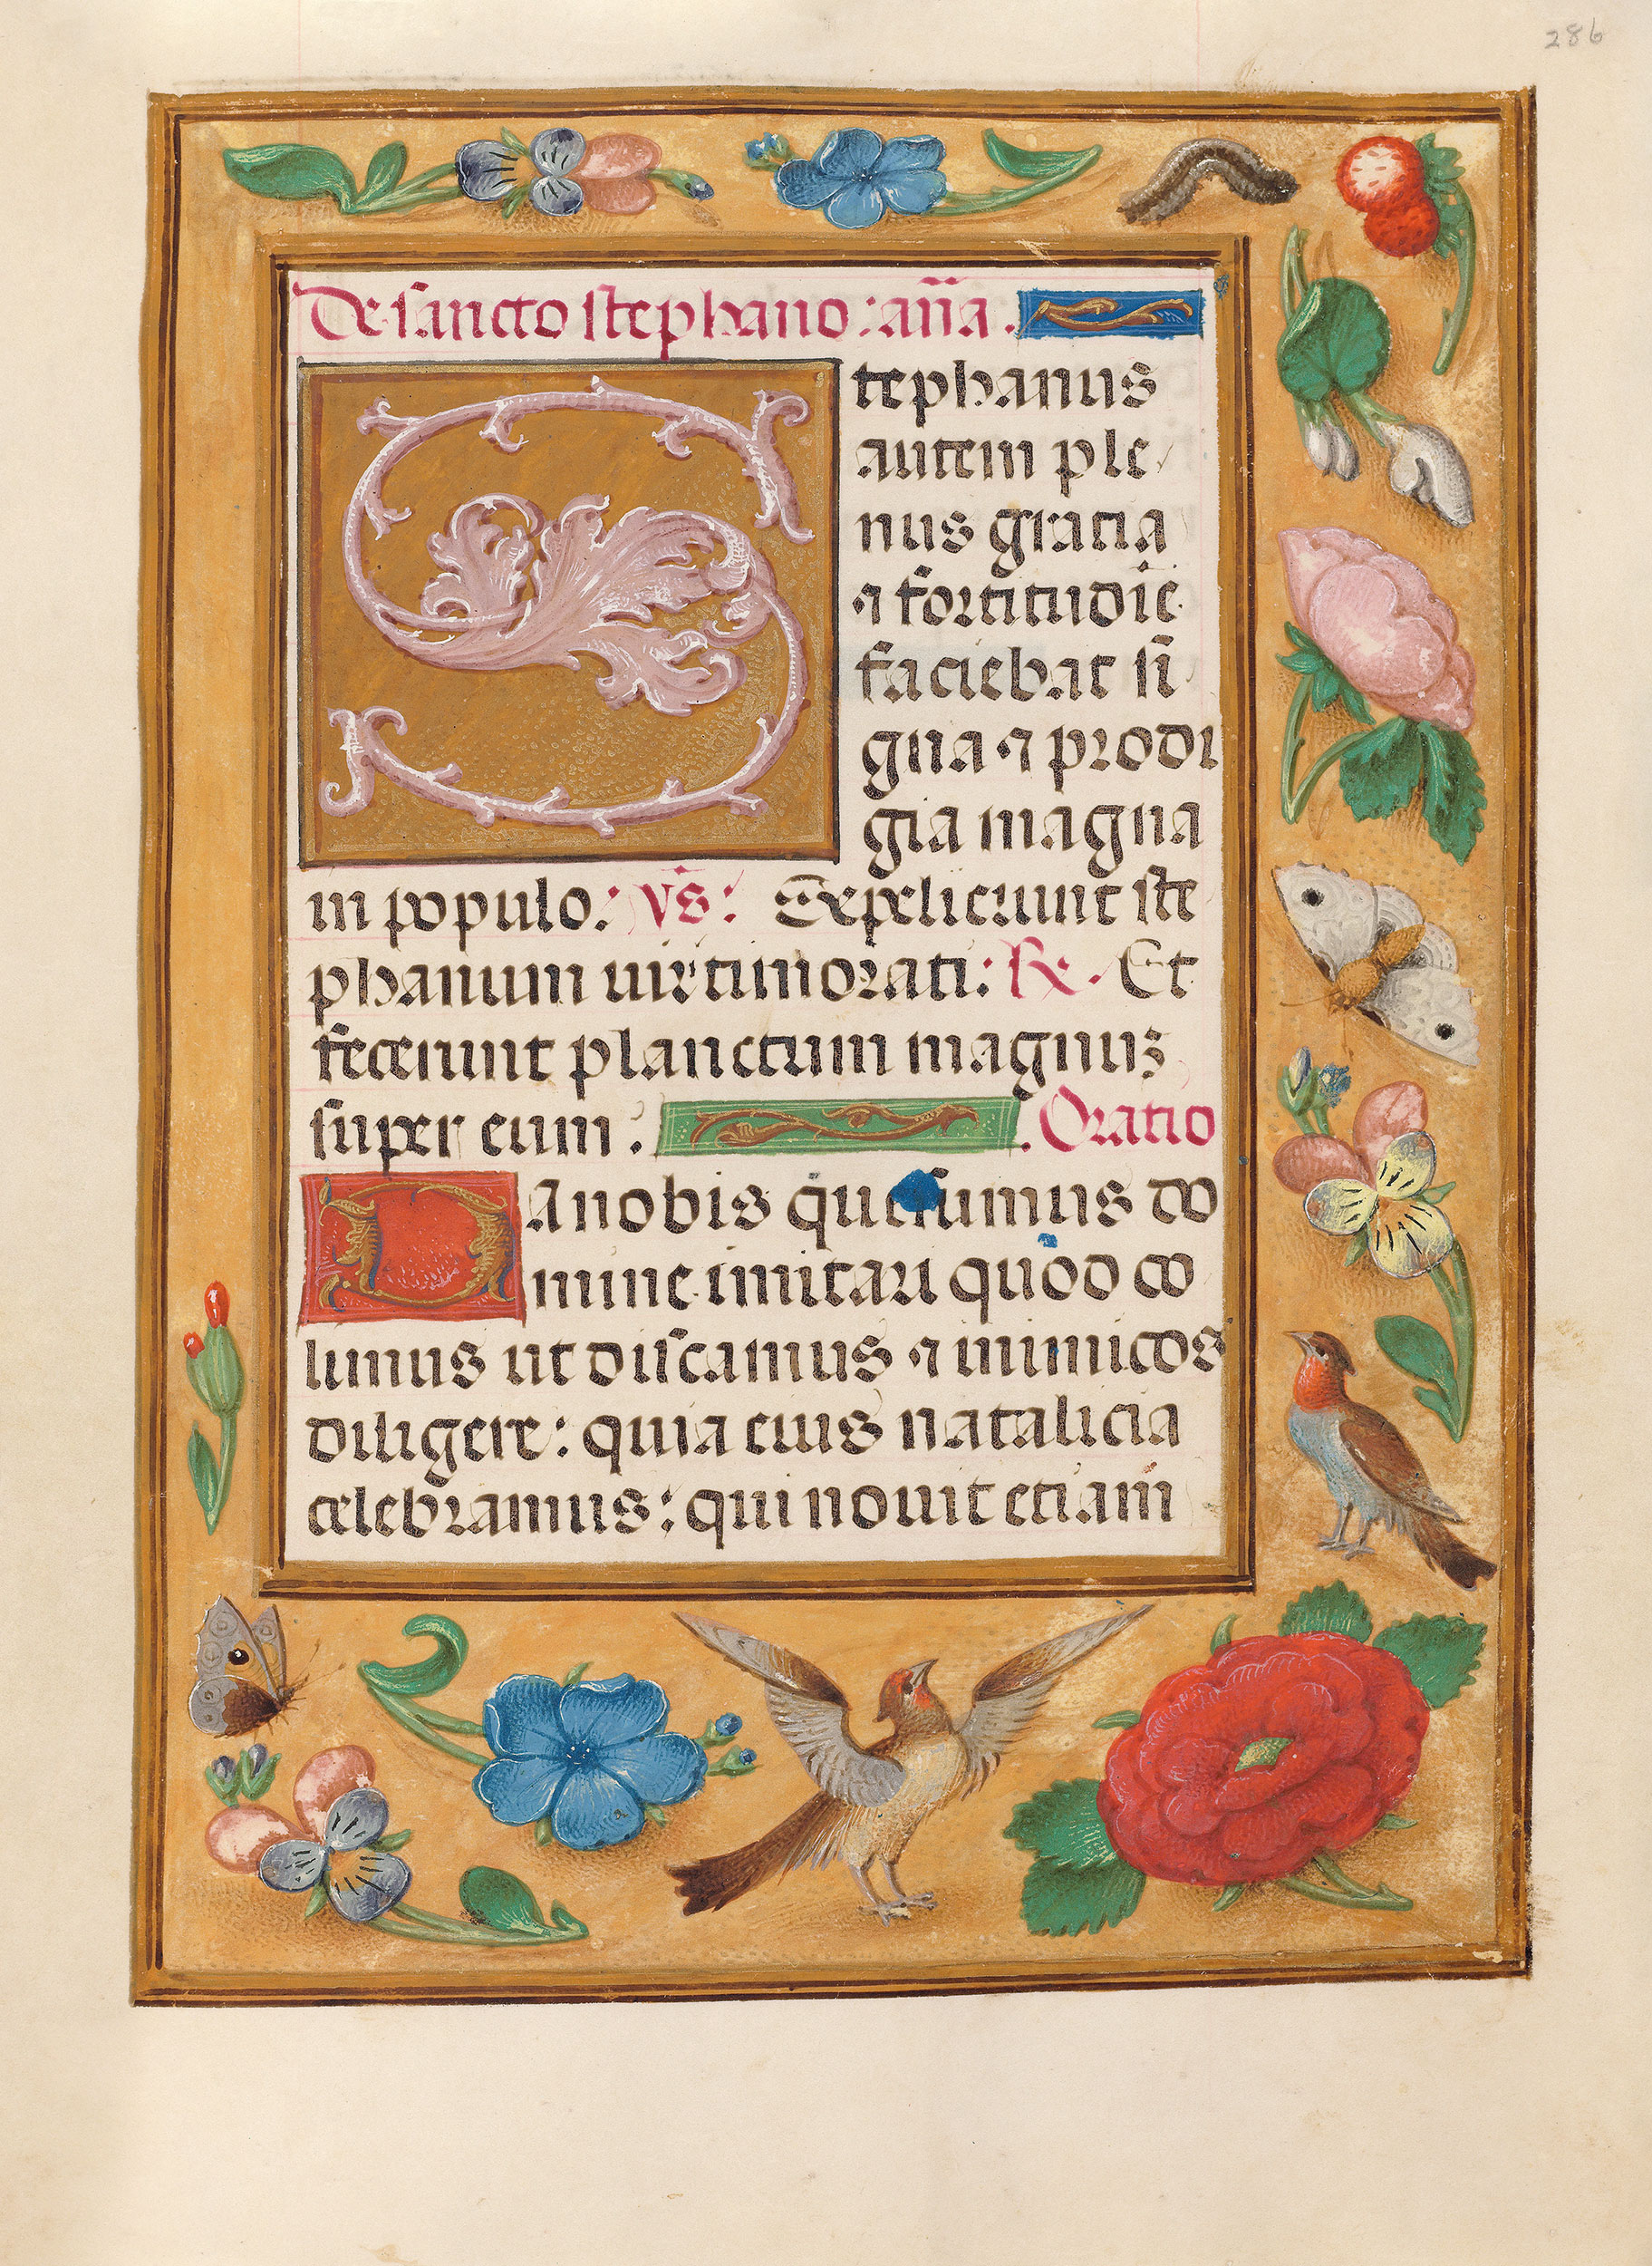 286
De sancto stephano: an̄a.
Stephanus
autem ple
nus gratia
⁊ fortitudīe
faciebat si
gna ⁊ prodi
gia magna
in populo: v̄s: Sepelierunt ste
phanum uiri timorati: ℟. Et
fecerunt planctum magnuꝫ
super eum: Oratio
Da nobis quesumus do
mine imitari quod co
limus ut discamus ⁊ inimicos
diligere: quia eius natalicia
celebramus: qui nouit etiam